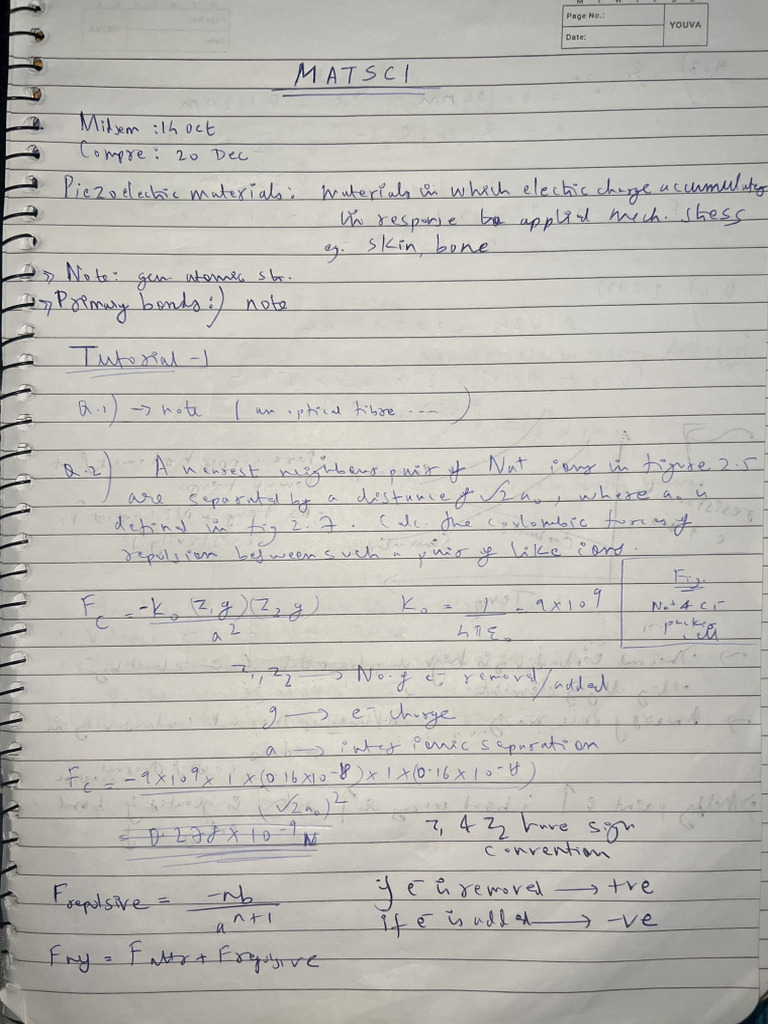 Page No.:
YOUVA
Date:
MATSCI
Midsem : 14 oct
Compre : 20 Dec
Piezoelectric materials : materials in which electric charge accumulates
in response to applied mech. stress
eg. skin, bone
→ Note: gen. atomic str.
→ Primary bonds:) note
Tutorial -1
Q.1) → note ( an optical fibre ---- )
Q.2) A nearest neighbour pair of Na+ ions in figure 2.5
are separated by a distance of √2 a₀, where a₀ is
defined in fig 2.7. Calc. the coulombic forces of
repulsion between such a pair of like ions.
F_C = -K₀ (Z₁q)(Z₂q) / a² K₀ = 1 / 4πε₀ = 9×10⁹
Fig.
Na+ & Cl-
packing
Z₁, Z₂ → No. of e- removed/added
q → e- charge
a → inter ionic separation
F_C = -9×10⁹ × 1×(0.16×10⁻⁸)×1×(0.16×10⁻⁸) / (√2a₀)²
= 0.278 × 10⁻⁹ N
Z₁ & Z₂ have sign
convention
F repulsive = -nb / aⁿ⁺¹
if e- is removed → +ve
if e- is added → -ve
= F attr + F repulsive